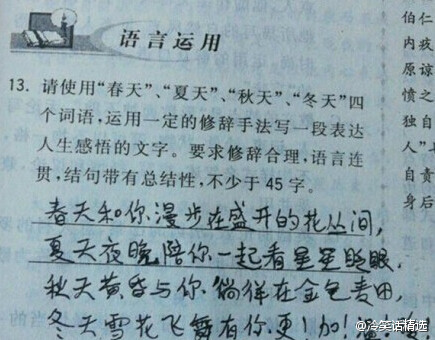 语言运用
13. 请使用“春天”、“夏天”、“秋天”、“冬天”四
个词语,运用一定的修辞手法写一段表达
人生感悟的文字。要求修辞合理,语言连
贯,结句带有总结性,不少于 45 字。
春天和你漫步在盛开的花丛间,
夏天夜晚陪你一起看星星眨眼,
秋天黄昏与你徜徉在金色麦田,
冬天雪花飞舞有你,更!加!温!
伯仁
内疚
原谅
愤之
独自
人”
自责
身后
@冷笑话精选